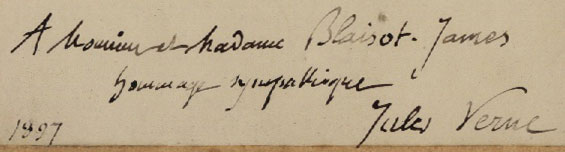 A Monsieur et Madame Blaisot-James
hommage sympathique
Jules Verne
1897